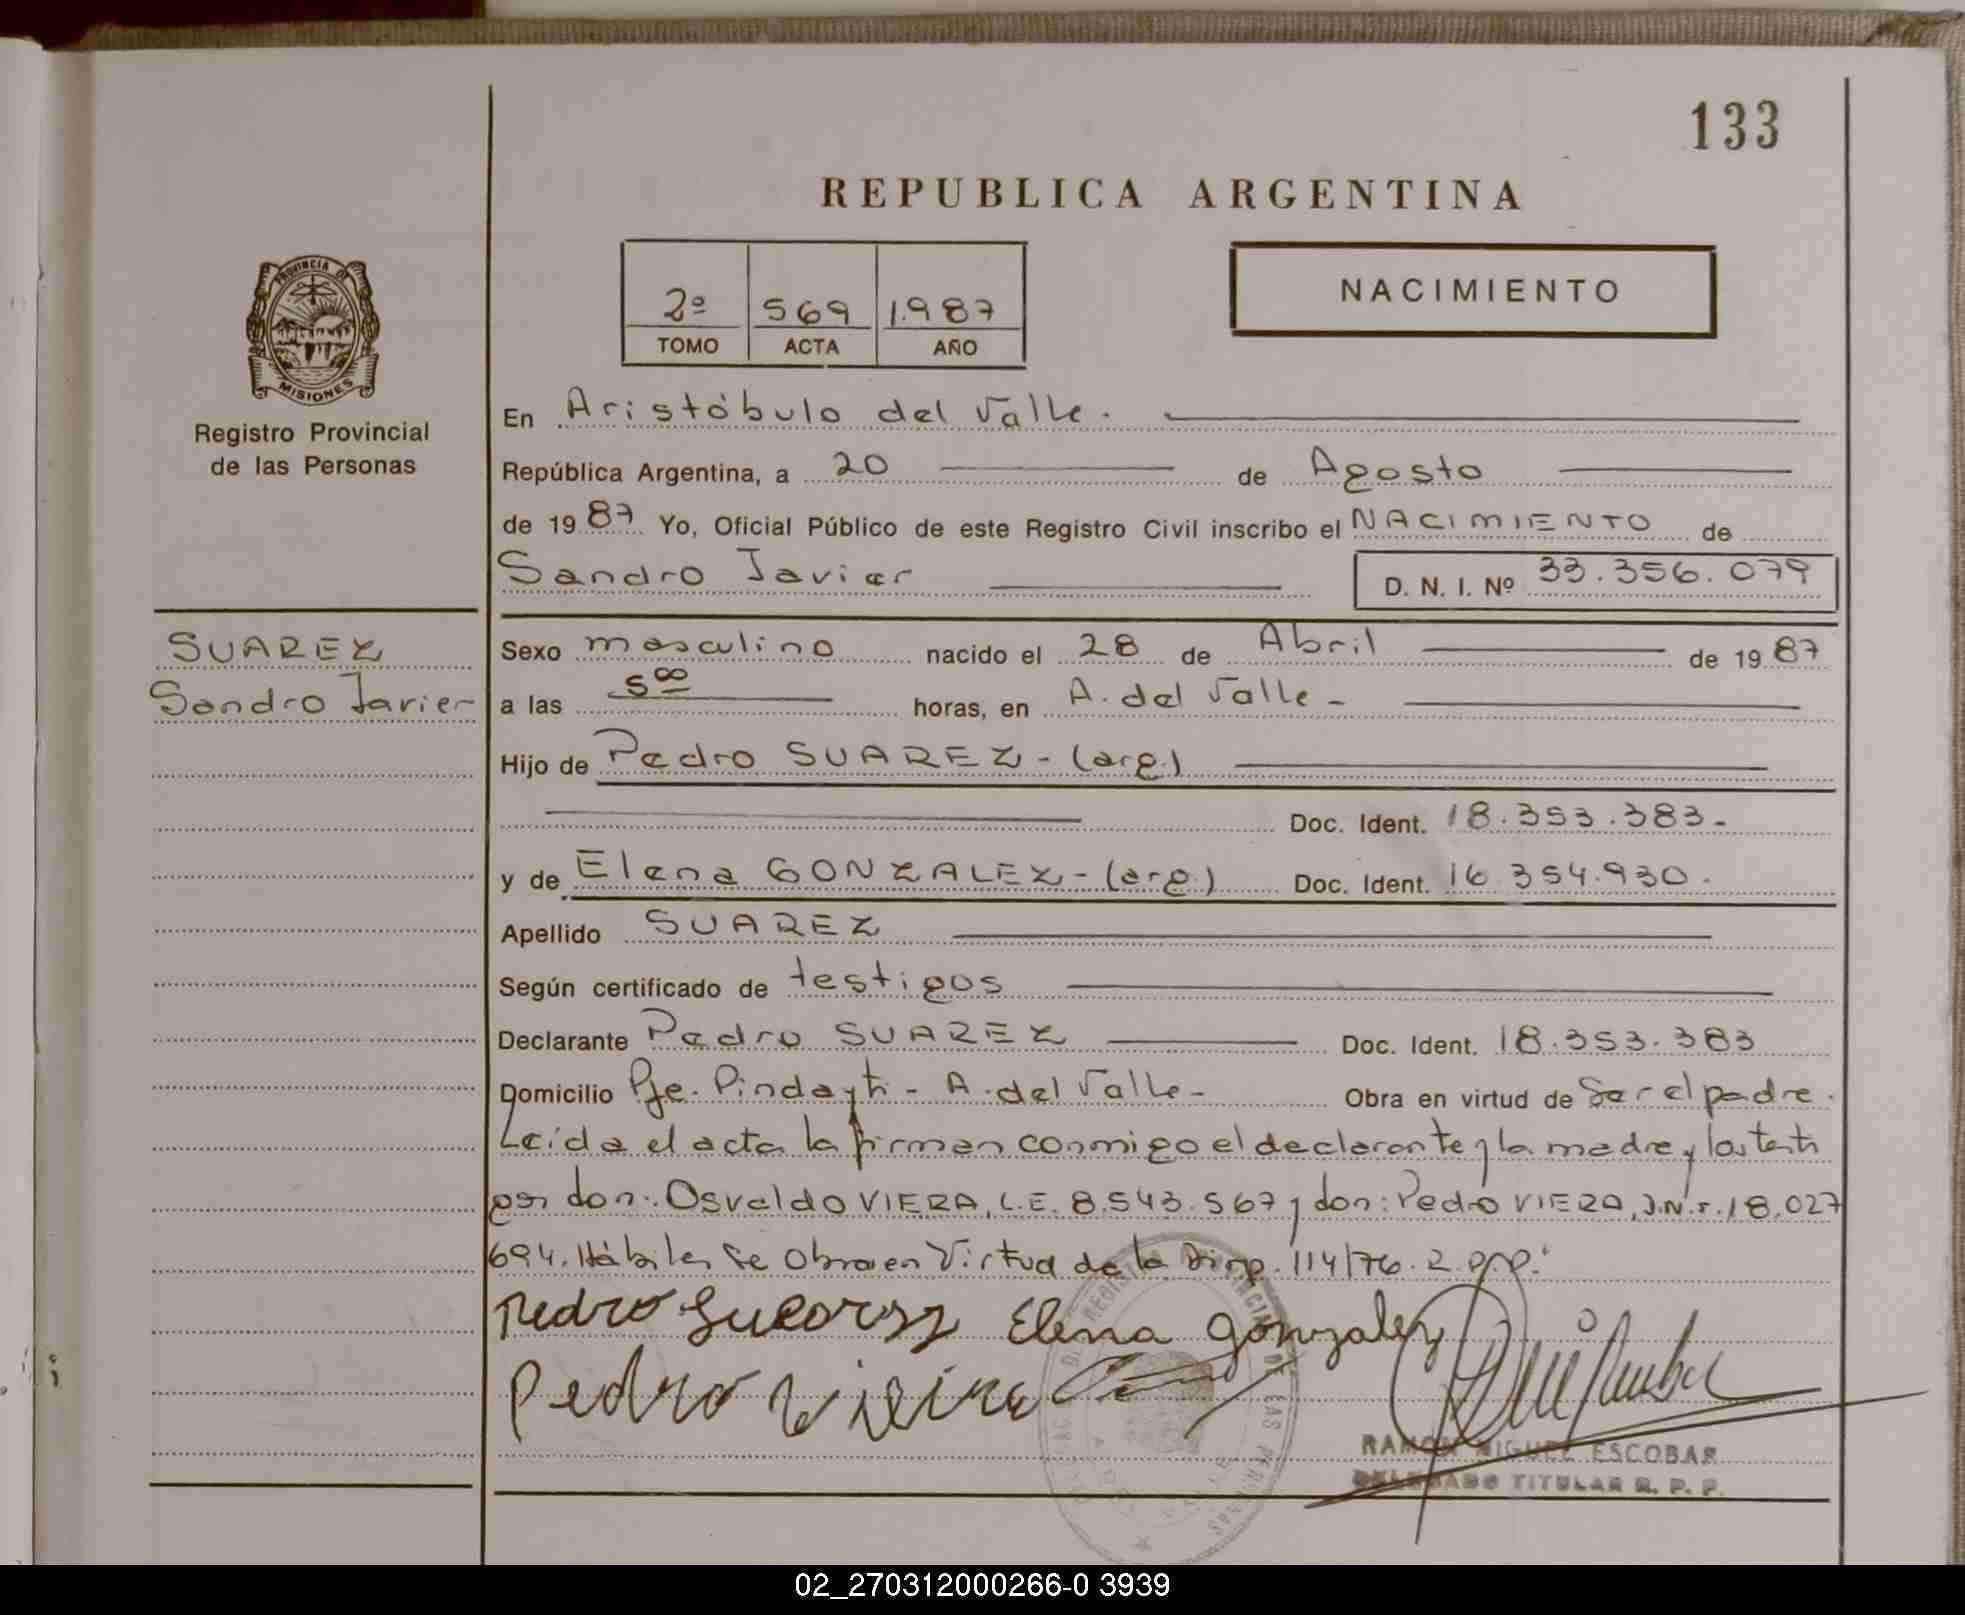 133
REPUBLICA ARGENTINA
PROVINCIA DE
MISIONES
Registro Provincial
de las Personas
2º 569 1.987
TOMO ACTA AÑO
NACIMIENTO
En Aristóbulo del Valle.
República Argentina, a 20 de Agosto
de 19 87 Yo, Oficial Público de este Registro Civil inscribo el NACIMIENTO de
Sandro Javier D. N. I. Nº 33.356.079
SUAREZ
Sandro Javier
Sexo masculino nacido el 28 de Abril de 19 87
a las 5 00 horas, en A. del Valle -
Hijo de Pedro SUAREZ - (arg.)
Doc. Ident. 18.353.383.-
y de Elena GONZALEZ - (arg.) Doc. Ident. 16.354.930.
Apellido SUAREZ
Según certificado de testigos
Declarante Pedro SUAREZ Doc. Ident. 18.353.383
Domicilio Pje. Pindayti - A. del Valle - Obra en virtud de Ser el padre.
Leída el acta la firman conmigo el declarante y la madre y los testi
gos don: Osvaldo VIERA, L.E. 8.543.567 y don: Pedro VIERA, 18.027
694. Hábiles Se Obra en Virtud de la Disp. 114/76.
Pedro Elena Gonzalez
Pedro Vieira
RAMON MIGUEL ESCOBAR
DELEGADO TITULAR R. P. P.
02_270312000266-0 3939